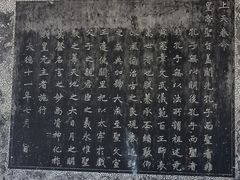 上天眷命
皇帝聖旨蓋聞先孔子而聖者非
孔子無以明後孔子而聖者非
孔子無以法所謂祖述堯舜
憲章文武儀範百王師表萬
世者也朕纂承丕緒敬仰休
風循治古之良規舉追封之
盛典加號大成至聖文宣
王遣使闕里祀以太牢於戲
父子之親君臣之義永惟聖
教之尊天地之大日月之明
奚罄名言之妙尚資神化祚
我皇元主者施行
大德十一年 月 日